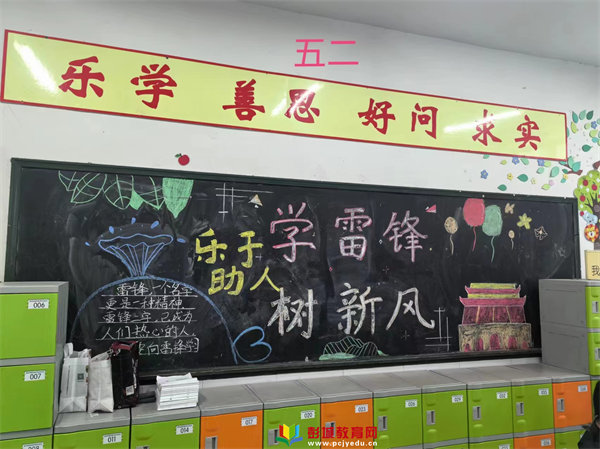 五二
乐学 善思 好问 求实
学雷锋
乐于
助人
树新风
雷锋一个名字
更是一种精神
雷锋一字,已成为
人们热心的人
向雷锋学
006
007
011
020
023
026
彭城教育网
www.pcjyedu.cn